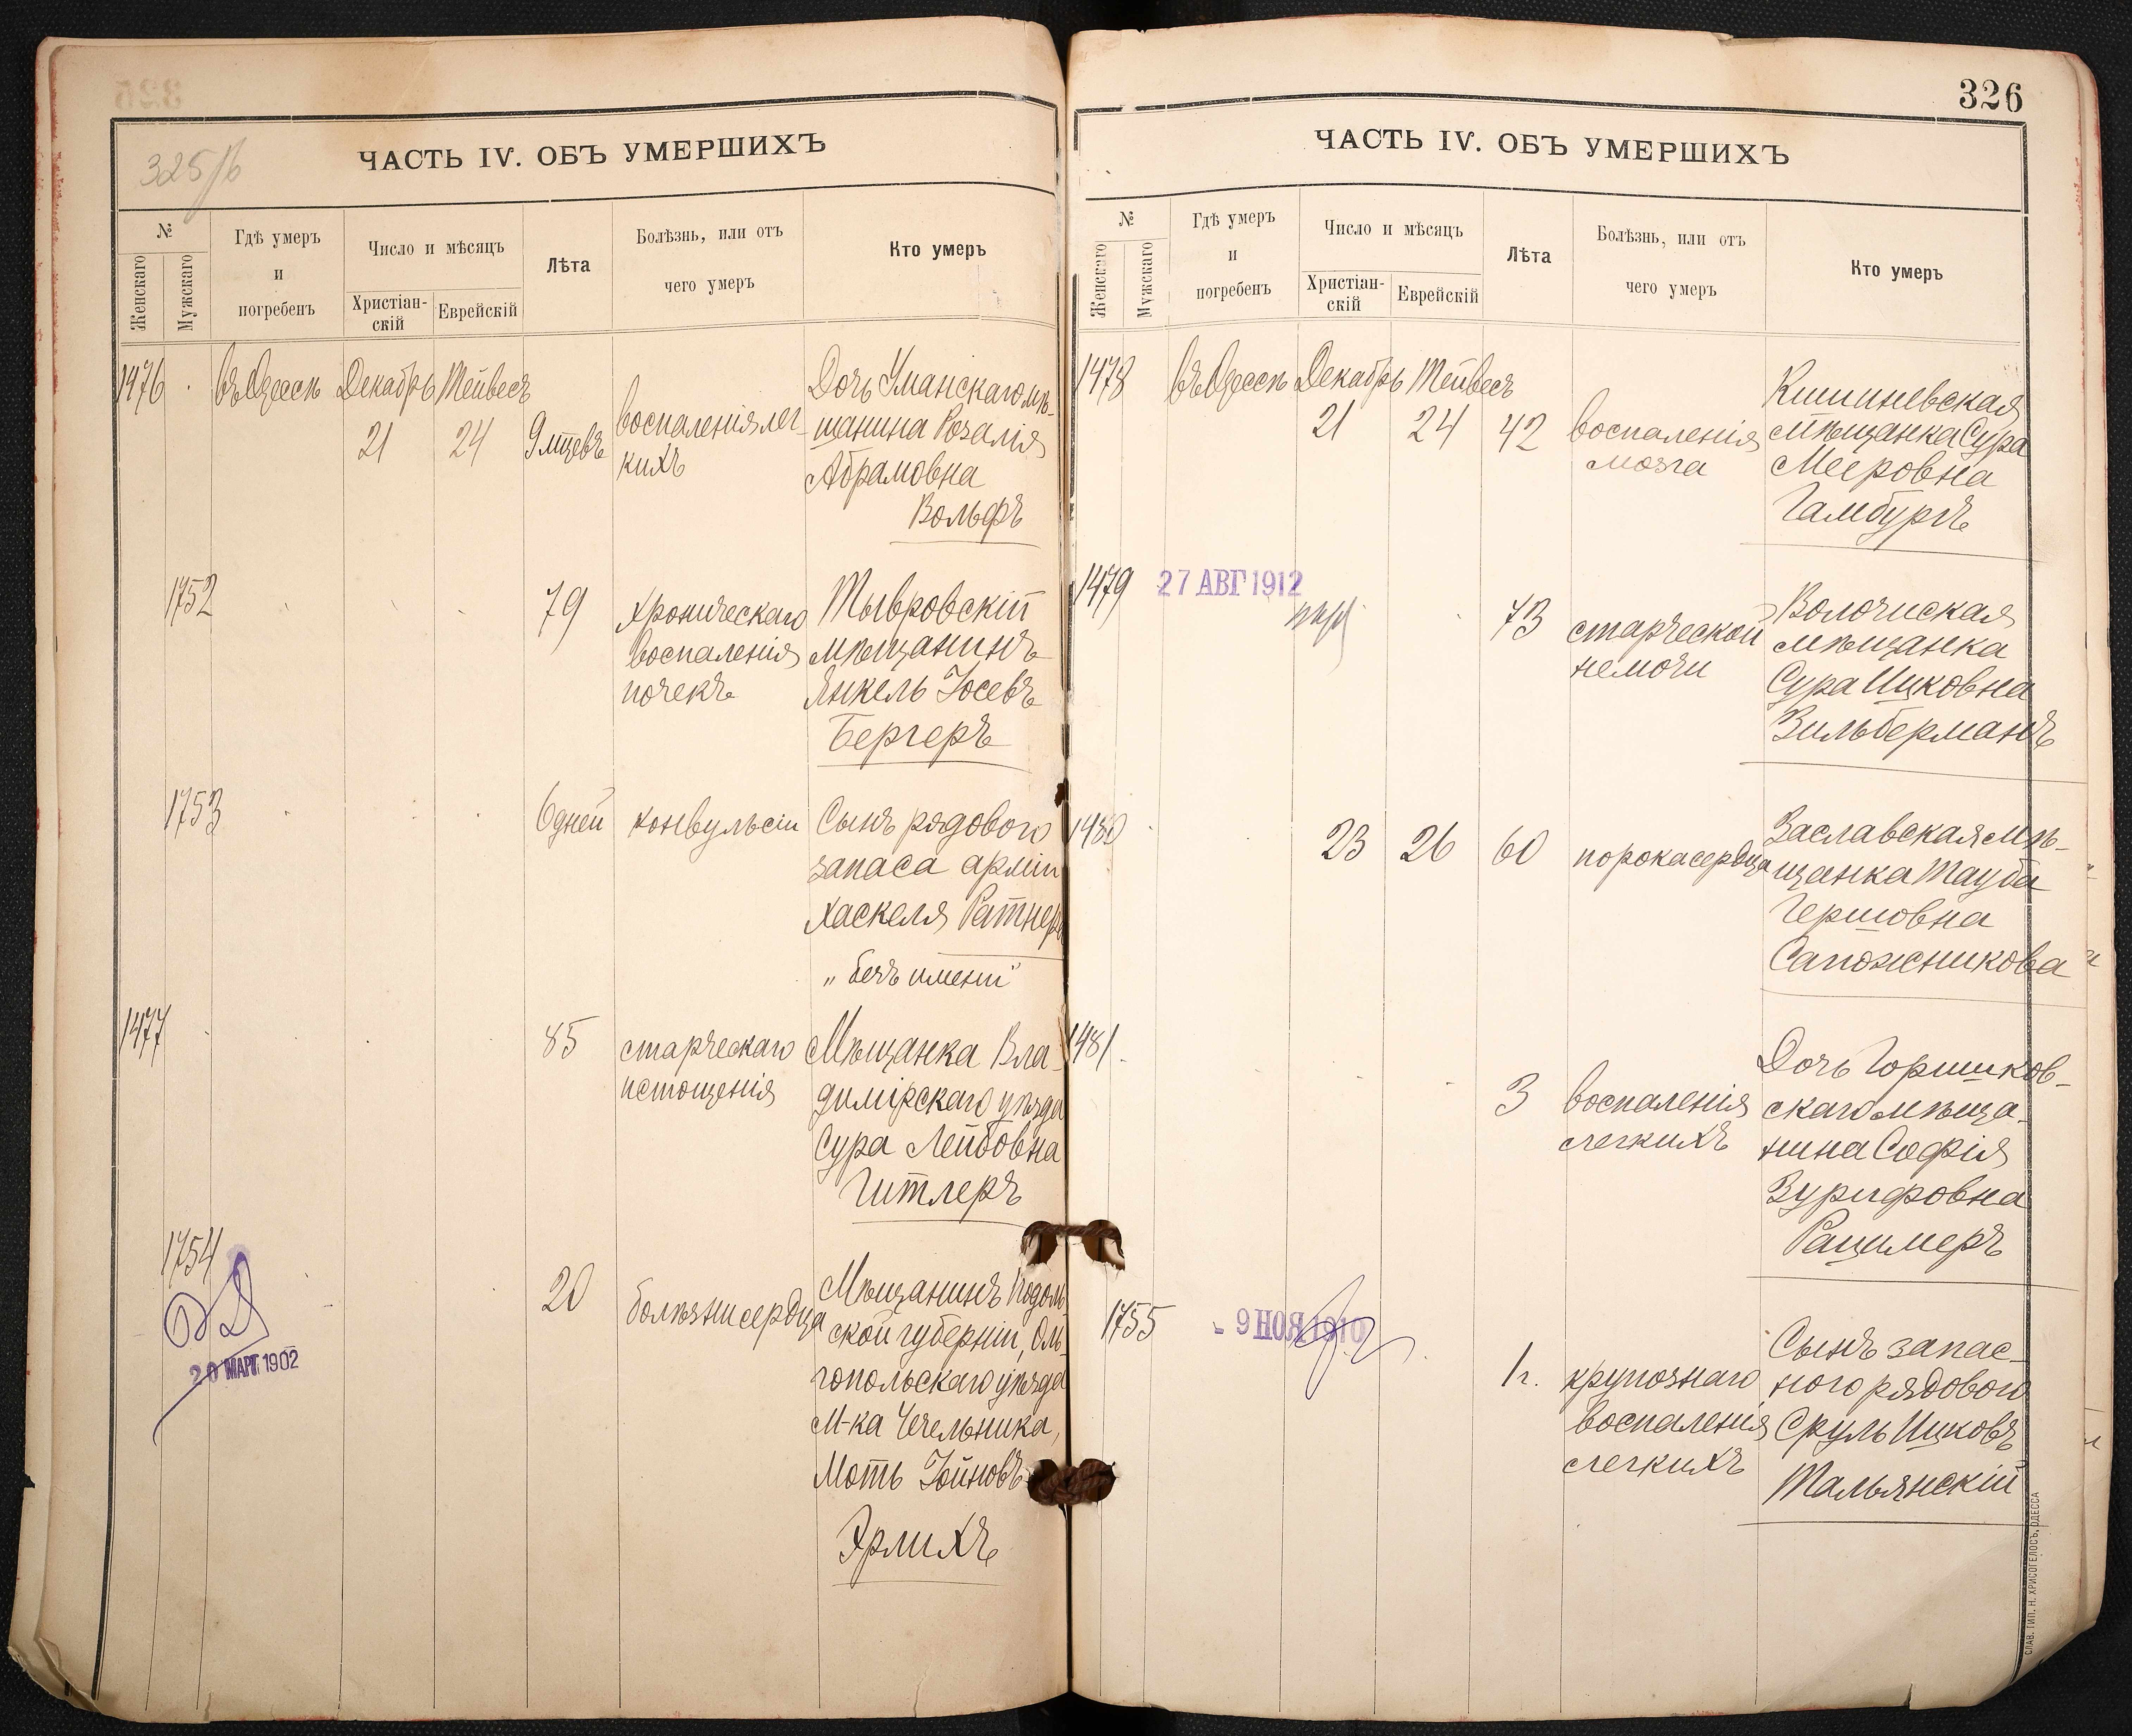 325/б
ЧАСТЬ IV. ОБЪ УМЕРШИХЪ
№
Женскаго
Мужскаго
Гдѣ умеръ
и
погребенъ
Число и мѣсяцъ
Христіан-
скій
Еврейскій
Лѣта
Болѣзнь, или отъ
чего умеръ
Кто умеръ
1476
въ Одессѣ
Декабрь
Тейвесъ
21
24
9 мцевъ
воспаленія лег-
кихъ
Дочь Уманскаго мѣ-
щанина Розалія
Абрамовна
Вольфъ
1752
79
хроническаго
воспаленія
почекъ
Тывровскій
мѣщанинъ
Янкель Іосевъ
Бергеръ
1753
6 дней
конвульсіи
Сынъ рядового
запаса арміи
Хаскеля Ратнера
„ безъ имени"
1477
85
старческаго
истощенія
Мѣщанка Вла-
димірскаго уѣзда
Сура Лейбовна
Гитлеръ
1754
20 МАРТ 1902
20
болѣзни сердца
Мѣщанинъ Подоль-
ской губерніи, Оль-
гопольскаго уѣзда
М-ка Чечельника,
Моть Іойновъ
Эрлихъ
326
ЧАСТЬ IV. ОБЪ УМЕРШИХЪ
№
Женскаго
Мужскаго
Гдѣ умеръ
и
погребенъ
Число и мѣсяцъ
Христіан-
скій
Еврейскій
Лѣта
Болѣзнь, или отъ
чего умеръ
Кто умеръ
1478
въ Одессѣ
Декабрь
Тейвесъ
21
24
42
воспаленія
мозга
Кишиневская
мѣщанка Сура
Мееровна
Гамбургъ
1479
27 АВГ 1912
73
старческой
немочи
Волочиская
мѣщанка
Сура Ицковна
Зильберманъ
1480
23
26
60
порока сердца
Заславская мѣ-
щанка Тауба
Гершовна
Сапожникова
1481
3
воспаленія
легкихъ
Дочь Горшков-
скаго мѣща-
нина Софія
Зурифовна
Рацимеръ
1755
- 9 НОЯ 1910
1 г.
крупознаго
воспаленія
легкихъ
Сынъ запас-
ного рядового
Сруль Ицковъ
Тальянскій
СЛАВ. ТИП. Н. ХРИСОГЕЛОСЪ, ОДЕССА